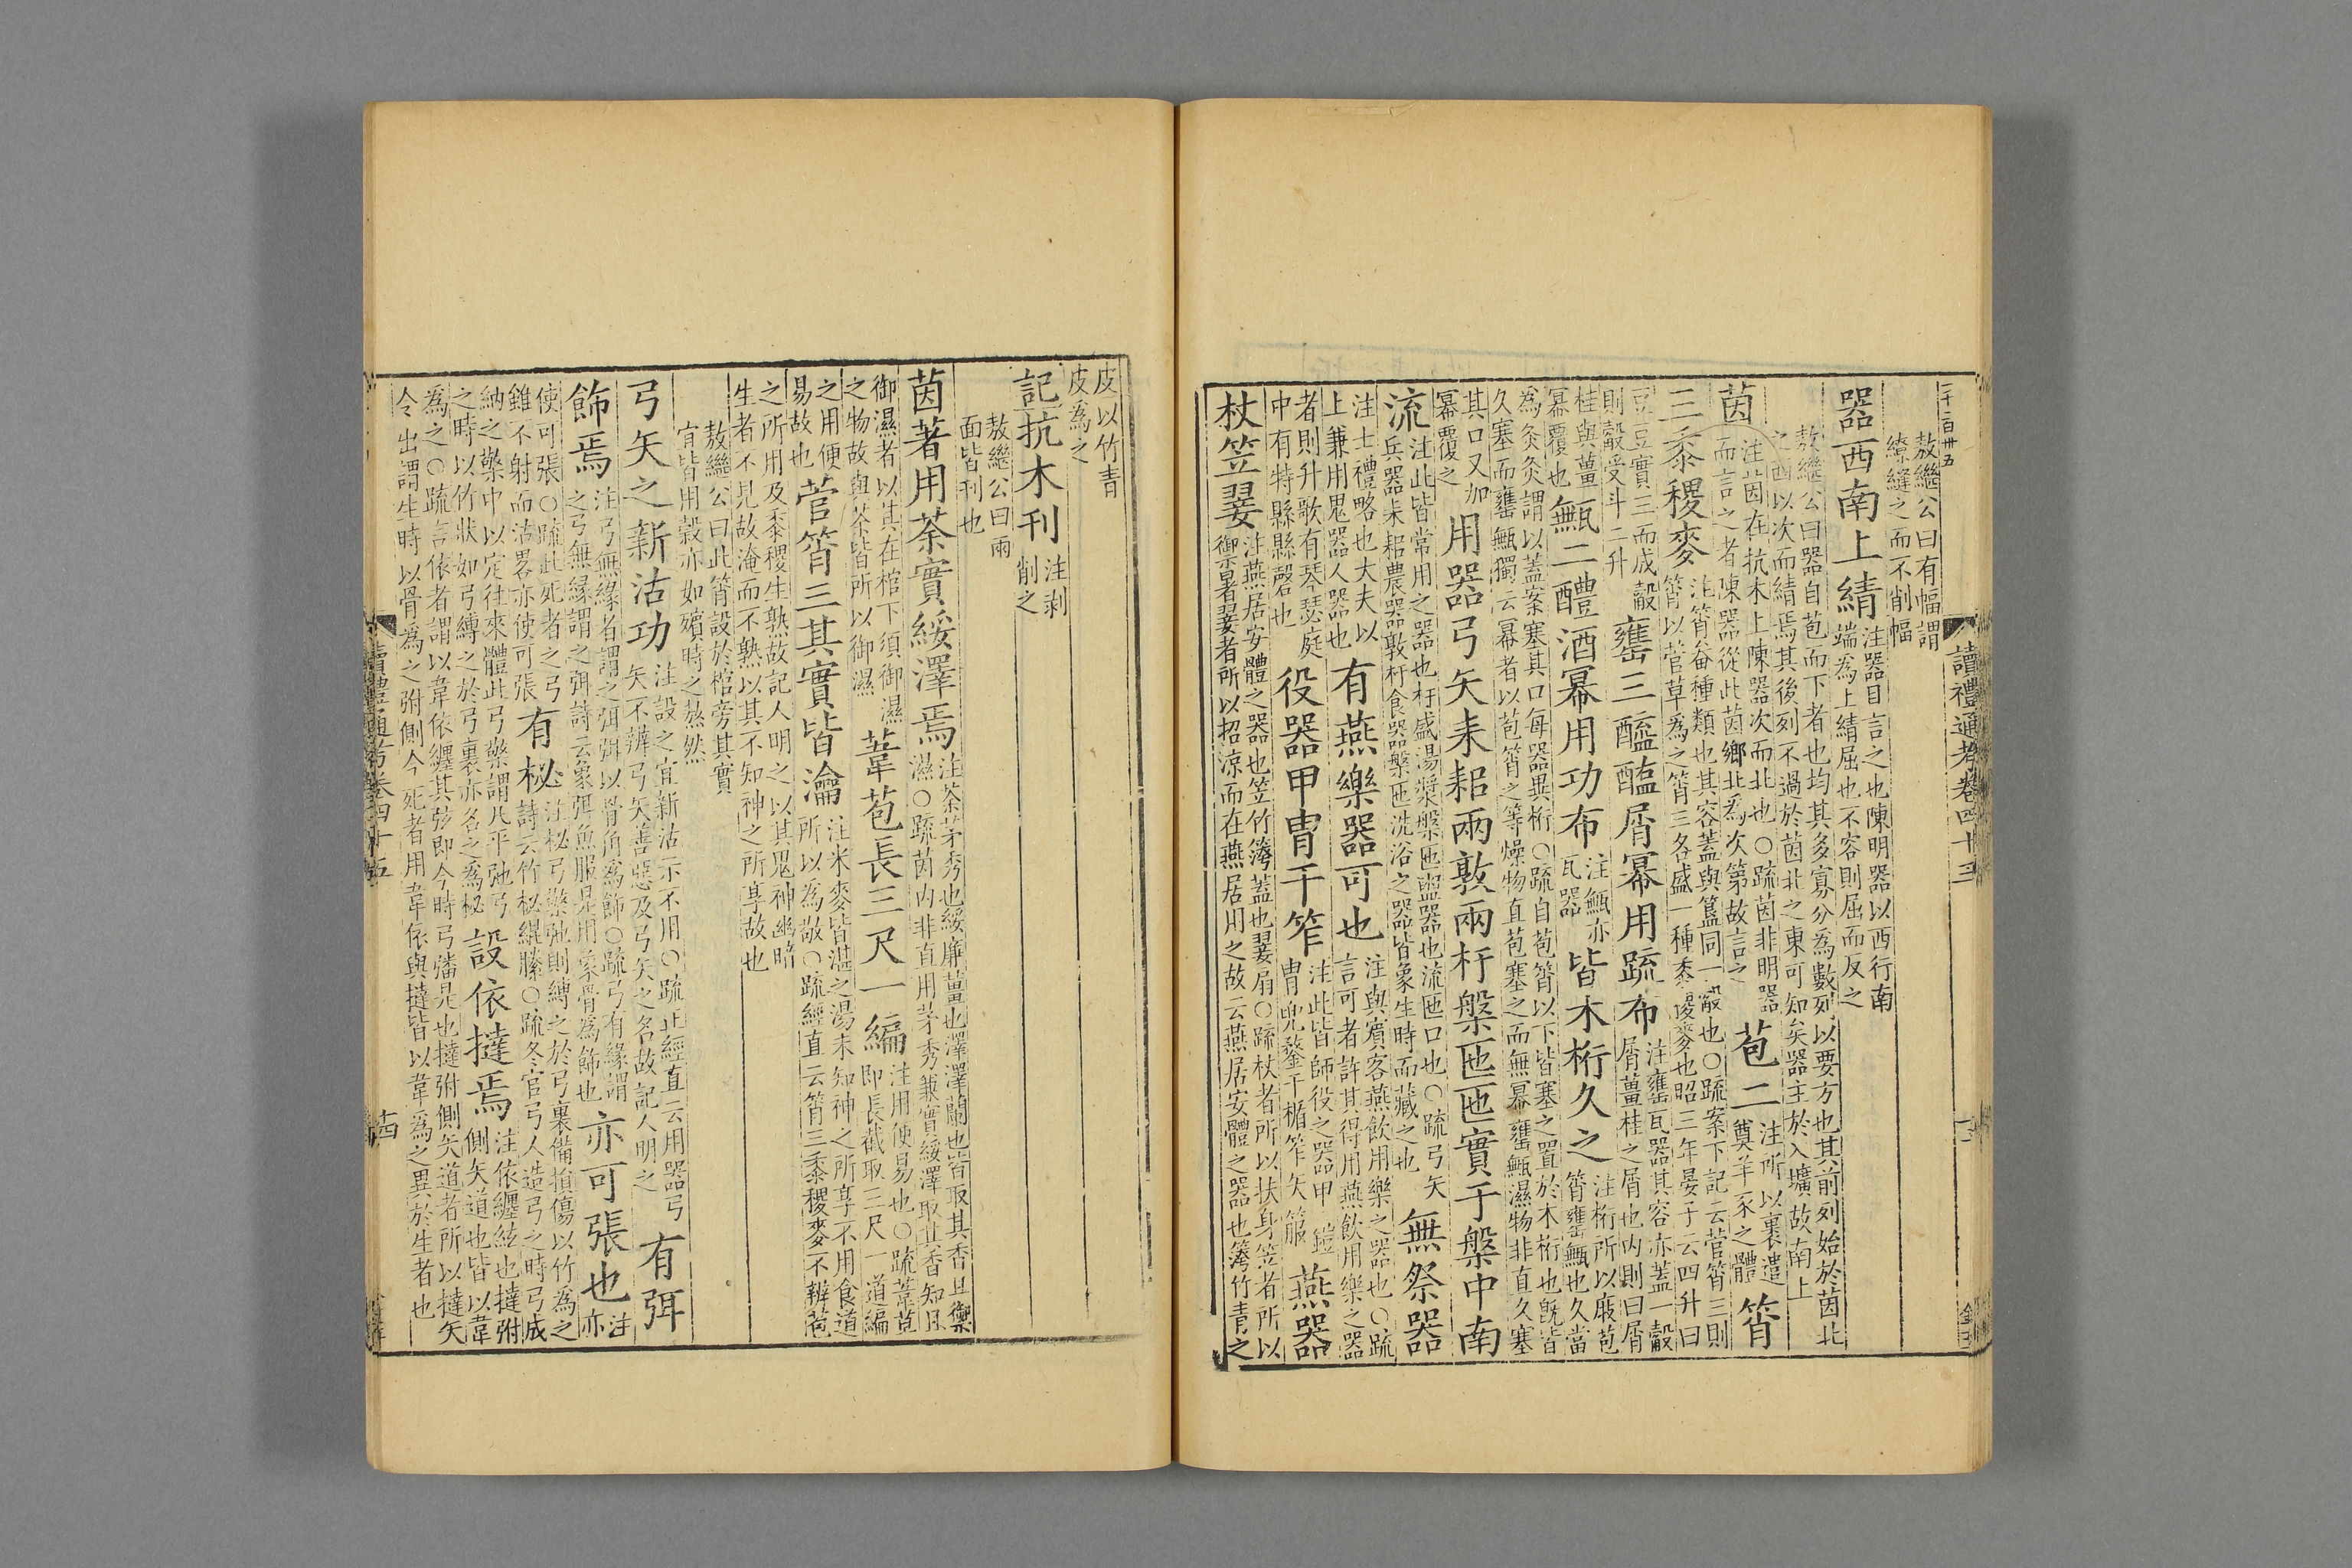 讀禮通考卷四十三
敖繼公曰有幅謂
繚縫之而不削幅
器西南上綪 注器目言之也陳明器以西行南
端為上綪屈也不容則屈而反之
敖繼公曰器自苞而下者也均其多寡分爲數列以要方也其前列始於茵北
之西以次而綪焉其後列不過於茵北之東可知矣器主於入壙故南上
茵 注茵在抗木上陳器次而北也○疏茵非明器
而言之者陳器從此茵鄉北爲次第故言之 苞二 注所以裹遣
奠羊豕之體 筲
三黍稷麥 注筲畚種類也其容蓋與簋同一觳也○疏案下記云菅筲三則
筲以菅草爲之筲三各盛一種黍稷麥也昭三年晏子云四升曰
豆豆實三而成觳
則觳受斗二升 罋三醯醢屑冪用疏布 注罋瓦器其容亦蓋一觳
屑薑桂之屑也内則曰屑
桂與薑
冪覆也 甒二醴酒冪用功布 注甒亦
瓦器 皆木桁久之 注桁所以庪苞
筲罋甒也久當
為灸灸謂以蓋案塞其口每器異桁○疏自苞筲以下皆塞之置於木桁也既皆
久塞而罋甒獨云冪者以苞筲之等燥物直苞塞之而無冪罋甒濕物非直久塞
其口又加
冪覆之 用器弓矢耒耜兩敦兩杅槃匜匜實于槃中南
流 注此皆常用之器也杅盛湯漿槃匜盥器也流匜口也○疏弓矢
兵器耒耜農器敦杅食器槃匜洗浴之器皆象生時而藏之也 無祭器
注士禮略也大夫以
上兼用鬼器人器也 有燕樂器可也 注與賓客燕飲用樂之器也○疏
言可者許其得用燕飲用樂之器
者則升歌有琴瑟庭
中有特縣縣磬也 役器甲冑干笮 注此皆師役之器甲鎧
冑兜鍪干楯笮矢箙 燕器
杖笠翣 注燕居安體之器也笠竹簿蓋也翣扇○疏杖者所以扶身笠者所以
御暑翣者所以招涼而在燕居用之故云燕居安體之器也簿竹青之
皮以竹青
皮爲之
記抗木刊 注剥
削之
敖繼公曰兩
面皆刊也
茵著用荼實綏澤焉 注荼茅秀也綏廉薑也澤澤蘭也皆取其香且禦
濕○疏茵内非直用茅秀兼實綏澤取其香知且
御濕者以其在棺下須御濕
之物故與荼皆所以御濕 葦苞長三尺一編 注用便易也○疏葦苞
即長截取三尺一道編
之用便
易故也 菅筲三其實皆瀹 注米麥皆湛之湯未知神之所享不用食道
所以為敬○疏經直云筲三黍稷麥不辨苞
之所用及黍稷生熟故記人明之以其鬼神幽暗
生者不見故淹而不熟以其不知神之所享故也
敖繼公曰此筲設於棺旁其實
宜皆用穀亦如殯時之熬然
弓矢之新沽功 注設之宜新沽示不用○疏上經直云用器弓
矢不辨弓矢善惡及弓矢之名故記人明之 有弭
飾焉 注弓無緣者謂之弭弭以骨角爲飾○疏弓有緣謂
之弓無緣謂之弭詩云象弭魚服是用象骨爲飾也 亦可張也 注
亦
使可張○疏此死者之弓
雖不射而沽畧亦使可張 有柲 注柲弓檠弛則縛之於弓裏備損傷以竹為之
詩云竹柲緄縢○疏冬官弓人造弓之時弓成
納之檠中以定往來體此弓檠謂凡平弛弓
之時以竹狀如弓縛之於弓裏亦名之為柲 設依撻焉 注依纏絃也撻弣
側矢道也皆以韋
為之○疏言依者謂以韋依纏其弦即今時弓䪐是也撻弣側矢道者所以撻矢
令出謂生時以骨爲之弣側今死者用韋依與撻皆以韋爲之異於生者也
十四